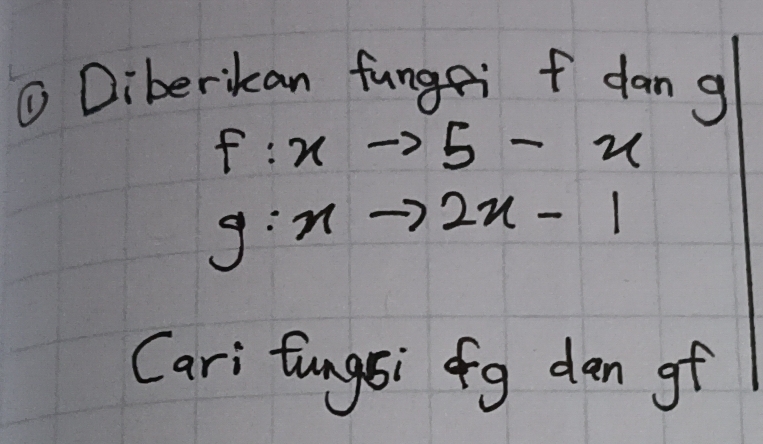 ① Diberikan fungsi f dan g
f : x → 5 - x
g : x → 2x - 1
Cari fungsi fg dan gf